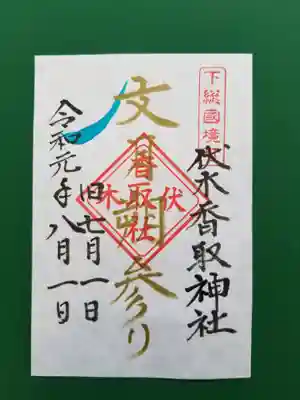 下総國境
伏木香取神社
文月朔参り
伏木
香取社
旧七月一日
令和元年八月一日